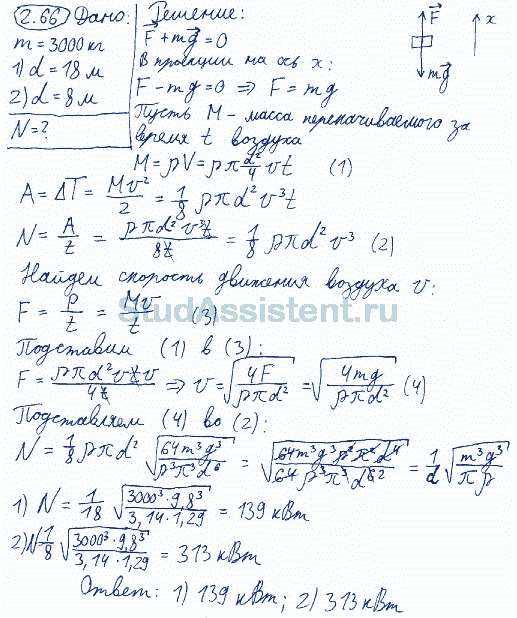 2.66 Дано:
m = 3000 кг
1) d = 18 м
2) d = 8 м
N = ?
Решение:
F⃗ + mg⃗ = 0
В проекции на ось x:
F - mg = 0 ⇒ F = mg
F⃗
x
mg⃗
Пусть M - масса перекачиваемого за
время t воздуха
M = ρV = ρπ d²/4 vt (1)
A = ΔT = Mv²/2 = 1/8 ρπd²v³t
N = A/t = ρπd²v³t/8t = 1/8 ρπd²v³ (2)
Найдем скорость движения воздуха v:
F = p/t = Mv/t (3)
StudAssistent.ru
Подставим (1) в (3):
F = ρπd²vtv/4t ⇒ v = √(4F/ρπd²) = √(4mg/ρπd²) (4)
Подставляем (4) во (2):
N = 1/8 ρπd² √(64m³g³/ρ³π³d⁶) = √(64m³g³ρ²π²d⁴/64ρ³π³d⁶²) = 1/d √(m³g³/πρ)
1) N = 1/18 √(3000³·9,8³/3,14·1,29) = 139 кВт
2) N 1/8 √(3000³·9,8³/3,14·1,29) = 313 кВт
Ответ: 1) 139 кВт; 2) 313 кВт